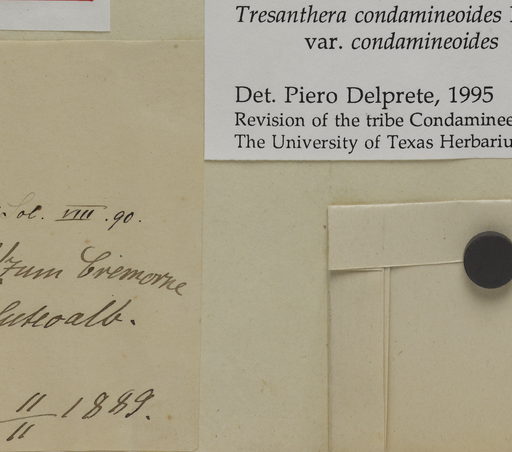 Tresanthera condamineoides
var. condamineoides
Det. Piero Delprete, 1995
Revision of the tribe Condaminee
The University of Texas Herbariu
Sol. VIII. 90.
zum Cremorne
luteoalb.
11/11 1889.